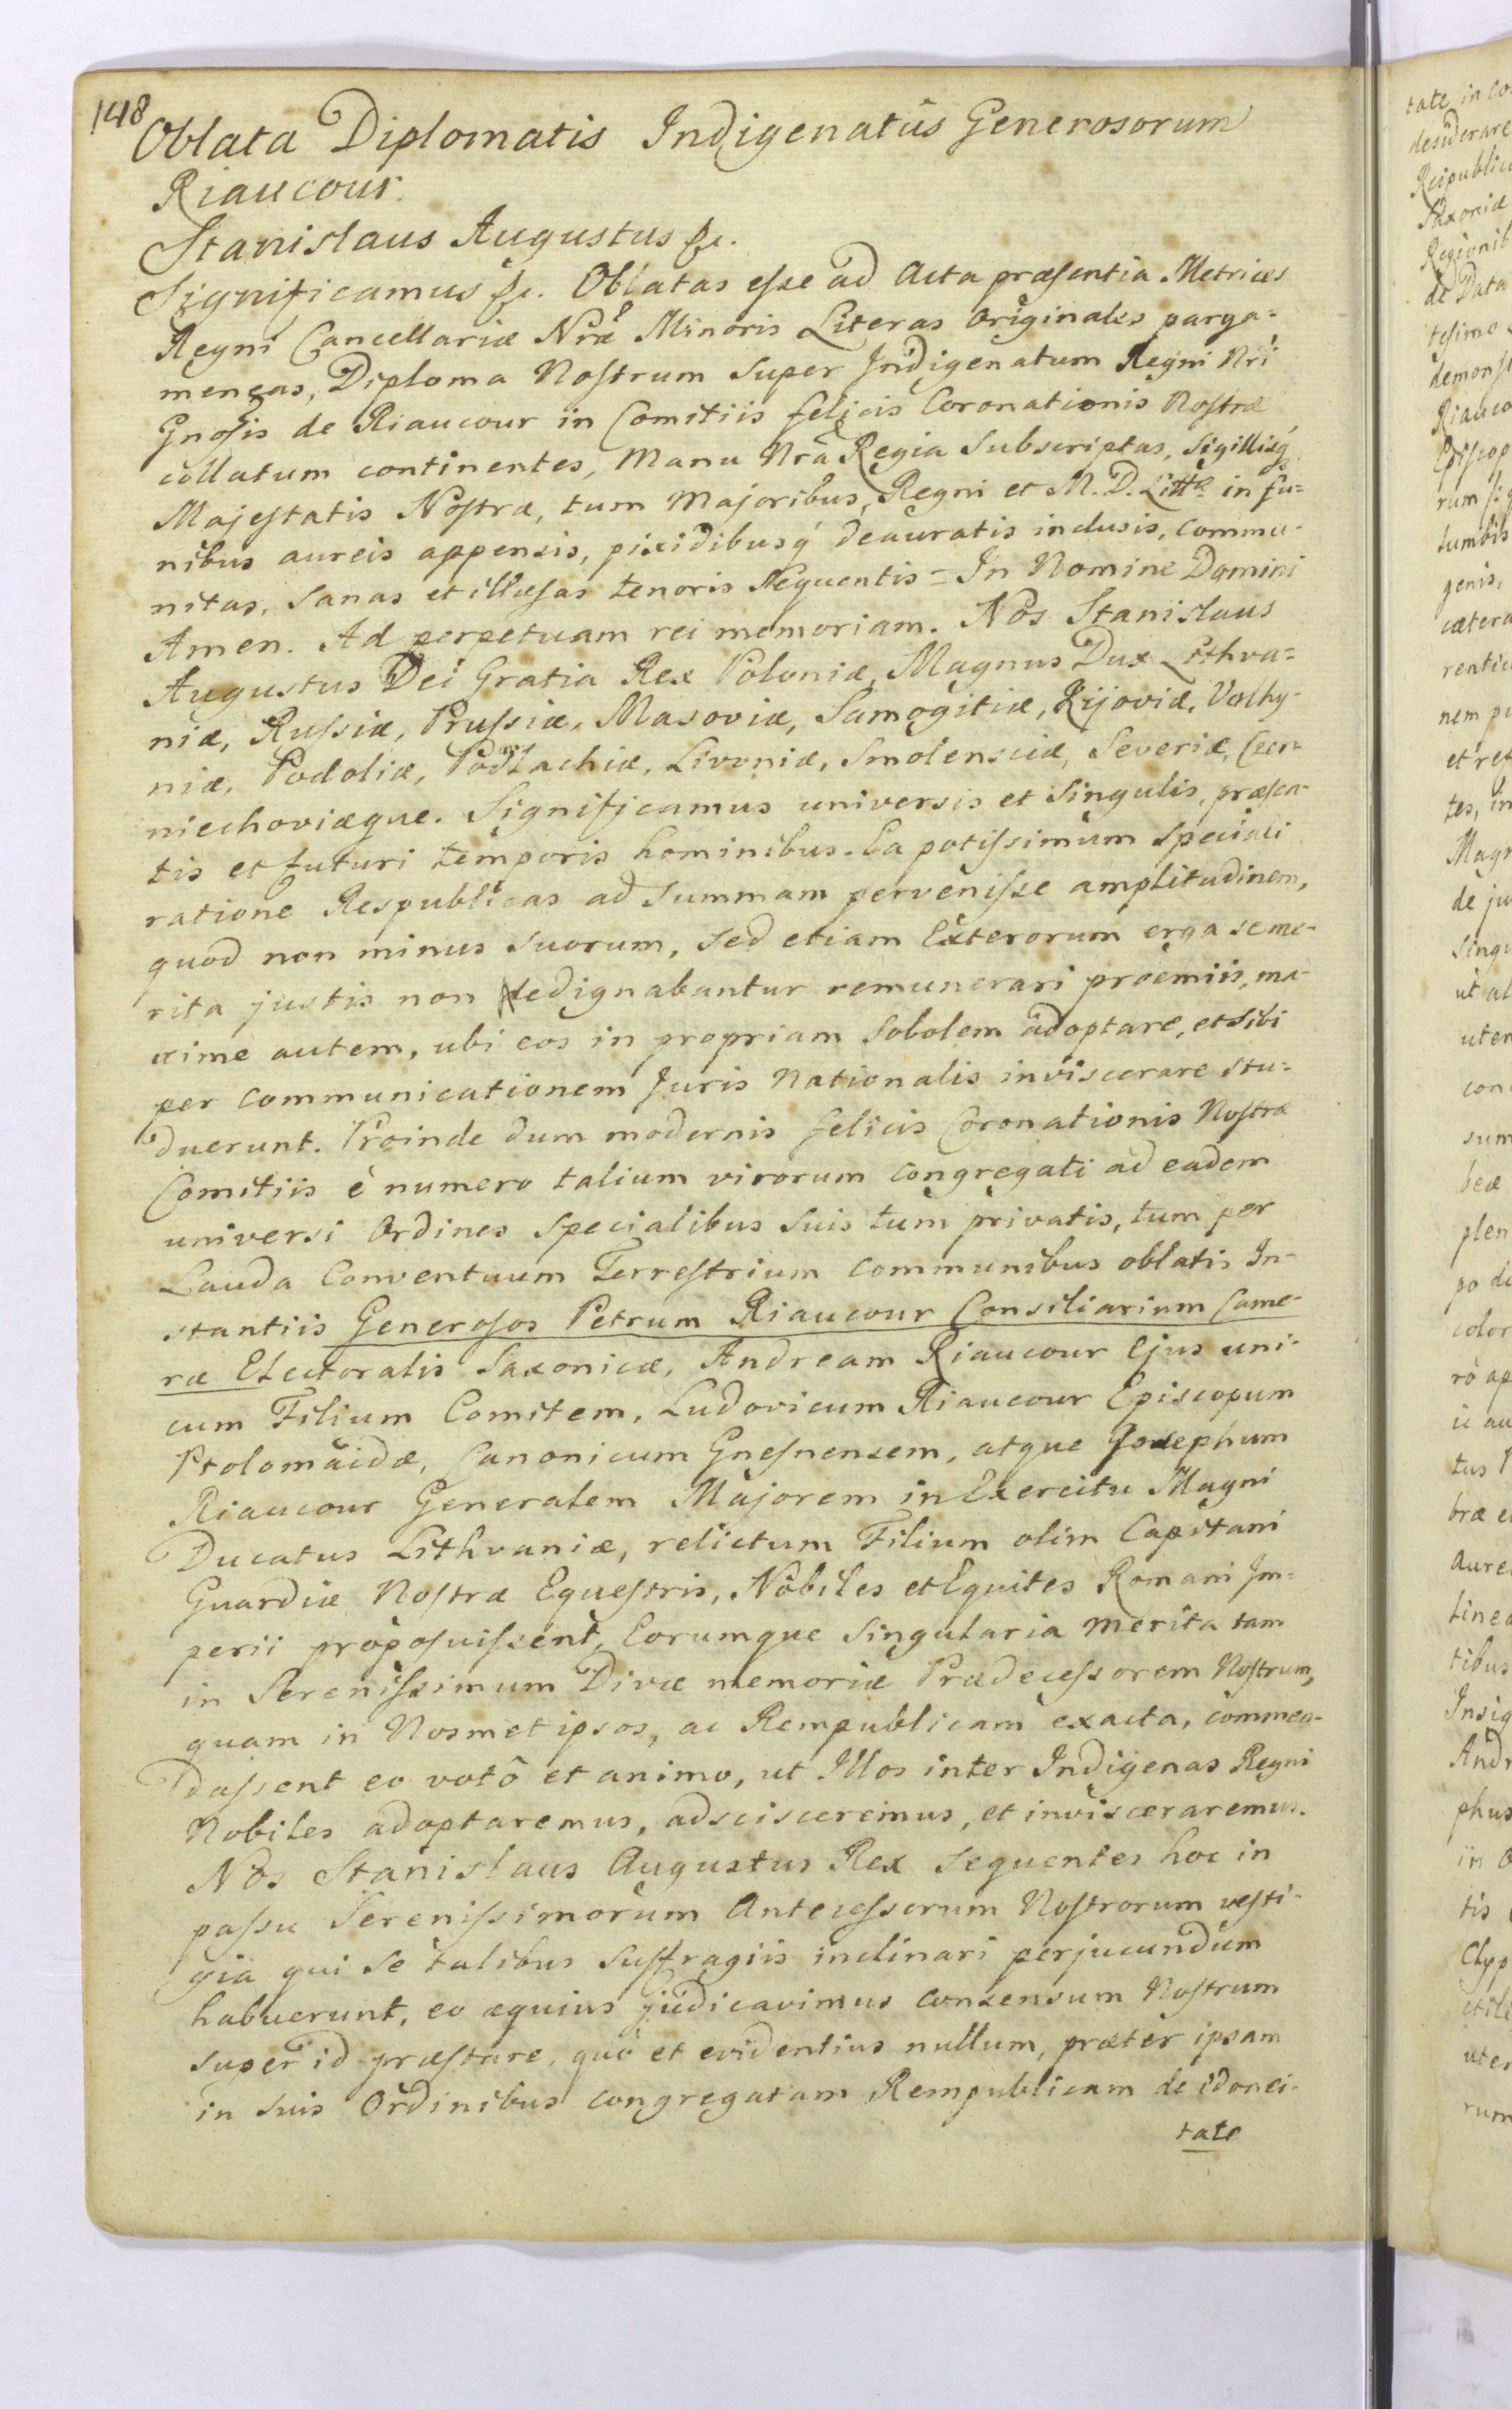 148
Oblata Diplomatis Indigenatûs Generosorum
Riaucour.
Stanislaus Augustus &c.
Significamus &c. Oblatas eſse ad Acta præsentia Metrices
Regni Cancellariæ Nræ Minoris Literas Originales parga-
meneas, Diploma Noſtrum super Indigenatum Regni Nri
Gnosis de Riaucour in Comitiis felicis Coronationis Noſtræ
collatum continentes, Manu Nrâ Regia Subscriptas, Sigillisq́
Majeſtatis Noſtræ, tum Majoribus, Regni et M. D. Litt. in fu-
nibus aureis appensis, pixidibusq́ deauratis inclusis, commu-
nitas, Sanas et illæsas tenoris sequentis = In Nomine Domini
Amen. Ad perpetuam rei memoriam. Nos Stanislaus
Augustus Dei Gratia Rex Poloniæ, Magnus Dux Lithva-
niæ, Ruſsiæ, Pruſsiæ, Masoviæ, Samogitiæ, Kijoviæ, Volhy-
niæ, Podoliæ, Podlachiæ, Livoniæ, Smolensciæ, Severiæ, Czer-
niechoviæque. Significamus universis et Singulis, præsen-
tis et futuri temporis hominibus. Ea potiſsimum speciali
ratione Respublicas ad Summam perveniſse amplitudinem,
quod non minus suorum, sed etiam Exterorum erga se me-
rita justis non dedignabantur remunerari proemiis, ma-
xime autem, ubi eos in propriam Sobolem adoptare, et sibi
per communicationem Juris Nationalis inviscerare stu-
duerunt. Proinde dum modernis felicis Coronationis Noſtræ
Comitiis è numero talium virorum congregati ad eadem
universi Ordines specialibus suis tum privatis, tum per
Lauda Conventuum Terreſtrium communibus oblatis In-
stantiis Generosos Petrum Riaucour Consiliarium Came-
ræ Electoralis Saxonicæ, Andream Riaucour Ejus uni-
cum Filium Comitem, Ludovicum Riaucour Episcopum
Ptolomaidæ, Canonicum Gnesnensem, atque Josephum
Riaucour Generalem Majorem in Exercitu Magni
Ducatus Lithvaniæ, relictum Filium olim Capitani
Guardiæ Noſtræ Equeſtris, Nobiles et Equites Romani Im-
perii proposuiſsent, Eorumque singularia merita tam
in Sereniſsimum Divæ memoriæ Prædeceſsorem Noſtrum,
quam in Nosmet ipsos, ac Rempublicam exacta, commen-
daſsent eo votô et animo, ut Illos inter Indigenas Regni
Nobiles adoptaremus, adscisceremus, et invisceraremus.
Nos Stanislaus Augustus Rex sequentes hoc in
paſsu Sereniſsimorum Anteceſsorum Noſtrorum veſti-
gia qui se talibus suffragiis inclinari perjucundum
habuerunt, eo æquius judicavimus consensum Noſtrum
super id præſtare, quò et evidentius nullum, præter ipsam
in suis Ordinibus congregatam Rempublicam de idonei-
tate
tate in co
desiderare
Reipublic
Saxoniæ
Regionib
de Data
tesimo
demonſt
Riauco
Episcop
rum
genis,
cætera
nem
et
tes, in
Magn
de ju
Singu
ut al
uter
con
sum
beæ
plen
po de
color
rò ap
ii au
tus
bræ e
aure
linea
tibus
Insig
Andr
phus
in
tis
Clyp
uter
rum